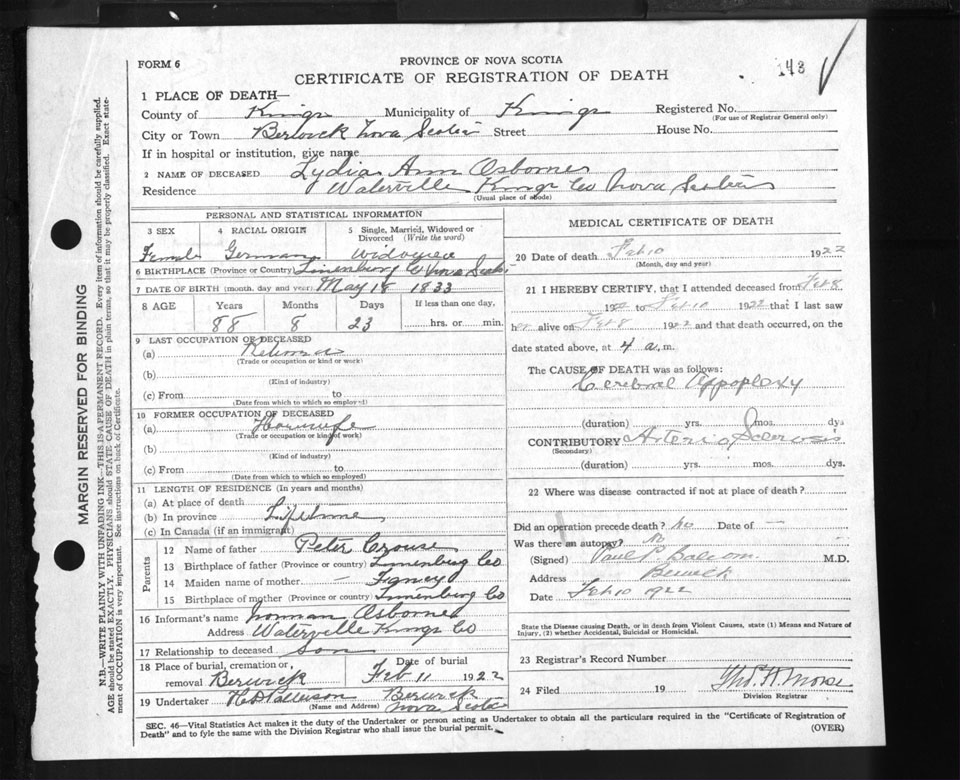 FORM 6
PROVINCE OF NOVA SCOTIA
143
CERTIFICATE OF REGISTRATION OF DEATH
1 PLACE OF DEATH—
County of Kings Municipality of Kings Registered No.
(For use of Registrar General only)
City or Town Berwick Nova Scotia Street House No.
If in hospital or institution, give name
2 NAME OF DECEASED Lydia Ann Osborne
Residence Waterville Kings Co Nova Scotia
(Usual place of abode)
PERSONAL AND STATISTICAL INFORMATION
3 SEX 4 RACIAL ORIGIN 5 Single, Married, Widowed or Divorced (Write the word)
Female German Widowed
6 BIRTHPLACE (Province or Country) Lunenburg Co Nova Scotia
7 DATE OF BIRTH (month, day and year) May 18 1833
8 AGE Years Months Days If less than one day,
88 8 23 hrs. or min.
9 LAST OCCUPATION OF DECEASED
(a) Retired
(Trade or occupation or kind or work)
(b)
(Kind of industry)
(c) From to
(Date from which to which so employed)
10 FORMER OCCUPATION OF DECEASED
(a) Housewife
(Trade or occupation or kind of work)
(b)
(Kind of industry)
(c) From to
(Date from which to which so employed)
11 LENGTH OF RESIDENCE (In years and months)
(a) At place of death
(b) In province Lifetime
(c) In Canada (if an immigrant)
Parents
12 Name of father Peter Crouse
13 Birthplace of father (Province or country) Lunenburg Co
14 Maiden name of mother —
15 Birthplace of mother (Province or country) Lunenburg Co
16 Informant's name Norman Osborne
Address Waterville Kings Co
17 Relationship to deceased Son
18 Place of burial, cremation or removal Berwick Date of burial Feb 11 1922
19 Undertaker Berwick Nova Scotia
(Name and Address)
MEDICAL CERTIFICATE OF DEATH
20 Date of death Feb 10 1922
(Month, day and year)
21 I HEREBY CERTIFY, that I attended deceased from Feb 8
1922 to Feb 10 1922 that I last saw
her alive on Feb 8 1922 and that death occurred, on the
date stated above, at 4 a.m.
The CAUSE OF DEATH was as follows:
Cerebral Appoplexy
(duration) yrs. mos. dys
CONTRIBUTORY Arterio Sclerosis
(Secondary)
(duration) yrs. mos. dys.
22 Where was disease contracted if not at place of death?
Did an operation precede death? No Date of —
Was there an autopsy? No
(Signed) Paul P Balcom M.D.
Address Berwick
Date Feb 10 1922
State the Disease causing Death, or in death from Violent Causes, state (1) Means and Nature of
Injury, (2) whether Accidental, Suicidal or Homicidal.
23 Registrar's Record Number
24 Filed 19 Morse
Division Registrar
SEC. 46—Vital Statistics Act makes it the duty of the Undertaker or person acting as Undertaker to obtain all the particulars required in the "Certificate of Registration of
Death" and to fyle the same with the Division Registrar who shall issue the burial permit.
(OVER)
MARGIN RESERVED FOR BINDING
N.B.—WRITE PLAINLY WITH UNFADING INK—THIS IS A PERMANENT RECORD. Every item of information should be carefully supplied.
AGE should be stated EXACTLY. PHYSICIANS should STATE CAUSE OF DEATH in plain terms, so that it may be properly classified. Exact state-
ment of OCCUPATION is very important. See instructions on back of Certificate.